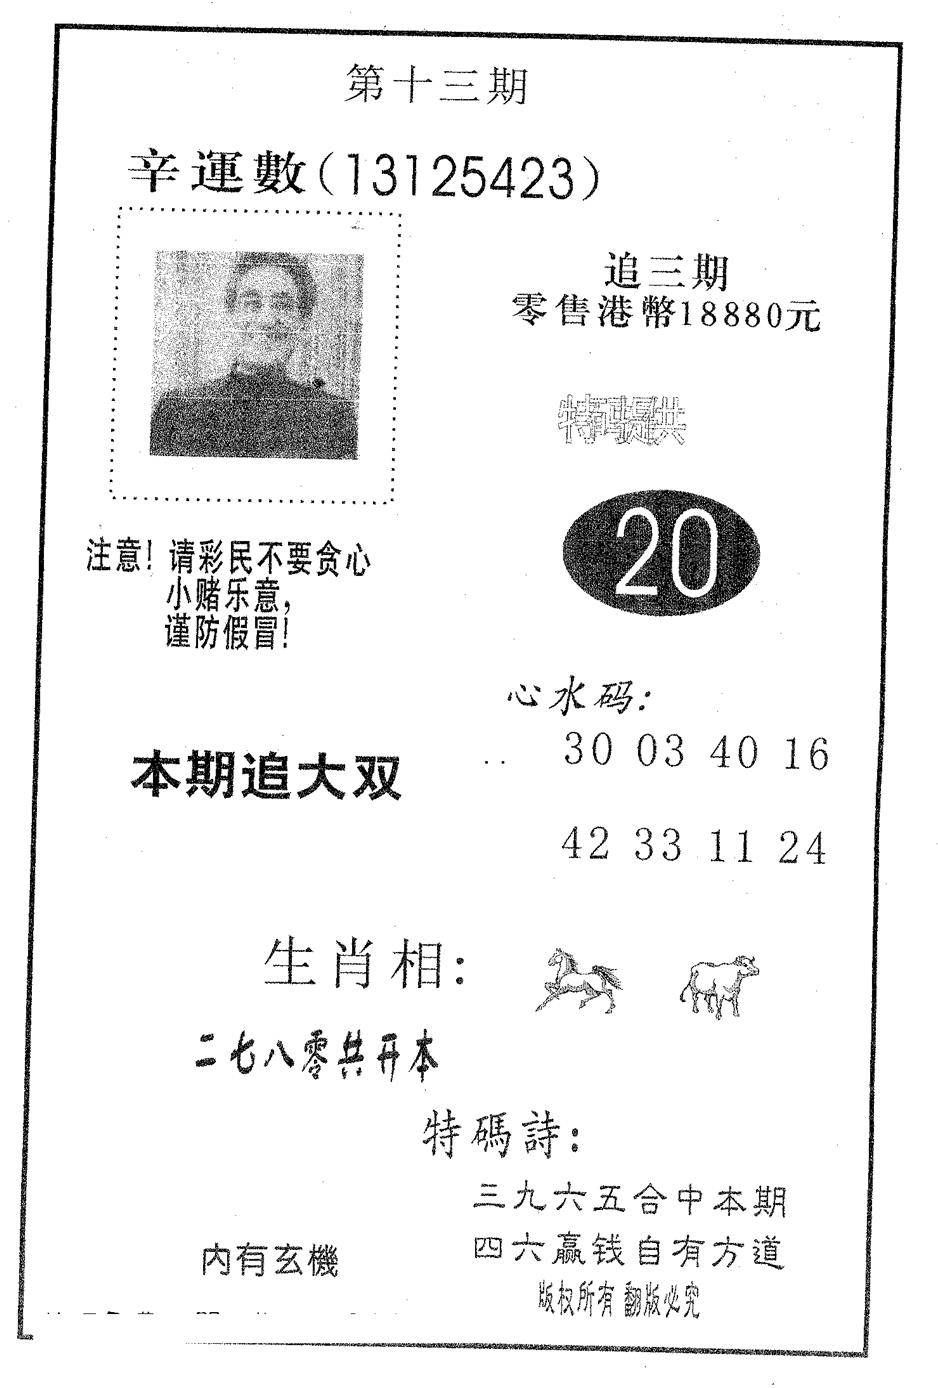 第十三期
辛運數(13125423)
追三期
零售港幣18880元
特码提供
20
注意！请彩民不要贪心
小赌乐意，
谨防假冒！
心水码：
30 03 40 16
本期追大双
42 33 11 24
生肖相：
二七八零共开本
特碼詩：
三九六五合中本期
四六赢钱自有方道
内有玄機
版权所有 翻版必究